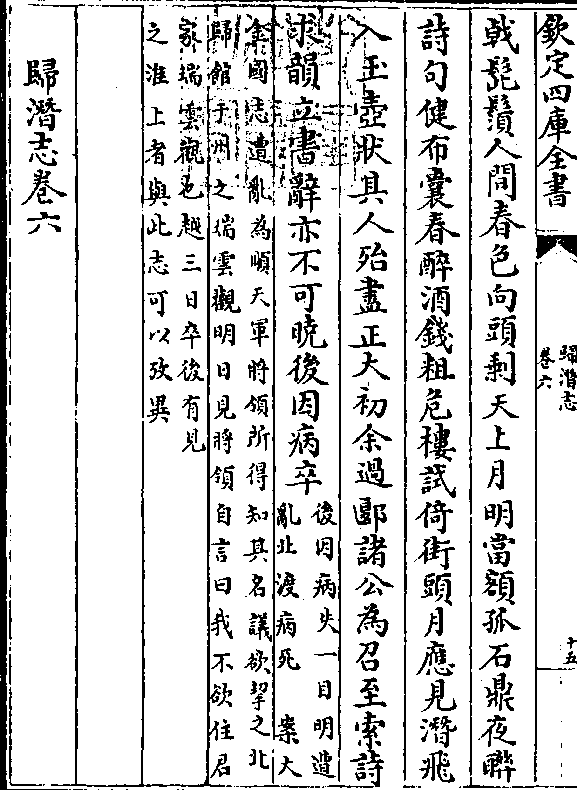 欽定四庫全書
歸潛志
卷六
十五
戟髭鬚人間春色向頭剩天上月明當額孤石鼎夜聯
詩句健布囊春醉酒錢粗危樓試倚街頭月應見潛飛
入玉壺狀其人殆盡正大初余過郾諸公為召至索詩
求韻立書辭亦不可曉後因病卒
後因病失一目明遭
亂北渡病死 案大
金國志遭亂為順天軍將領所得知其名議欲挈之北
歸館于州之瑞雲觀明日見將領自言曰我不欲住君
家瑞雲觀也越三日卒後有見
之淮上者與此志可以攷異
歸潛志卷六